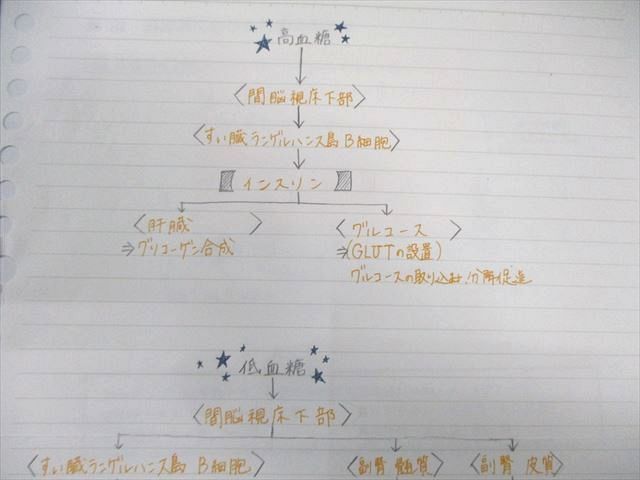 高血糖
〈間脳視床下部〉
〈すい臓ランゲルハンス島 B細胞〉
インスリン
〈肝臓 〉
⇒グリコーゲン合成
〈グルコース 〉
⇒(GLUTの設置)
グルコースの取り込み・分解促進
低血糖
〈間脳視床下部〉
〈すい臓ランゲルハンス島 B細胞〉
〈副腎 髄質〉
〈副腎 皮質〉